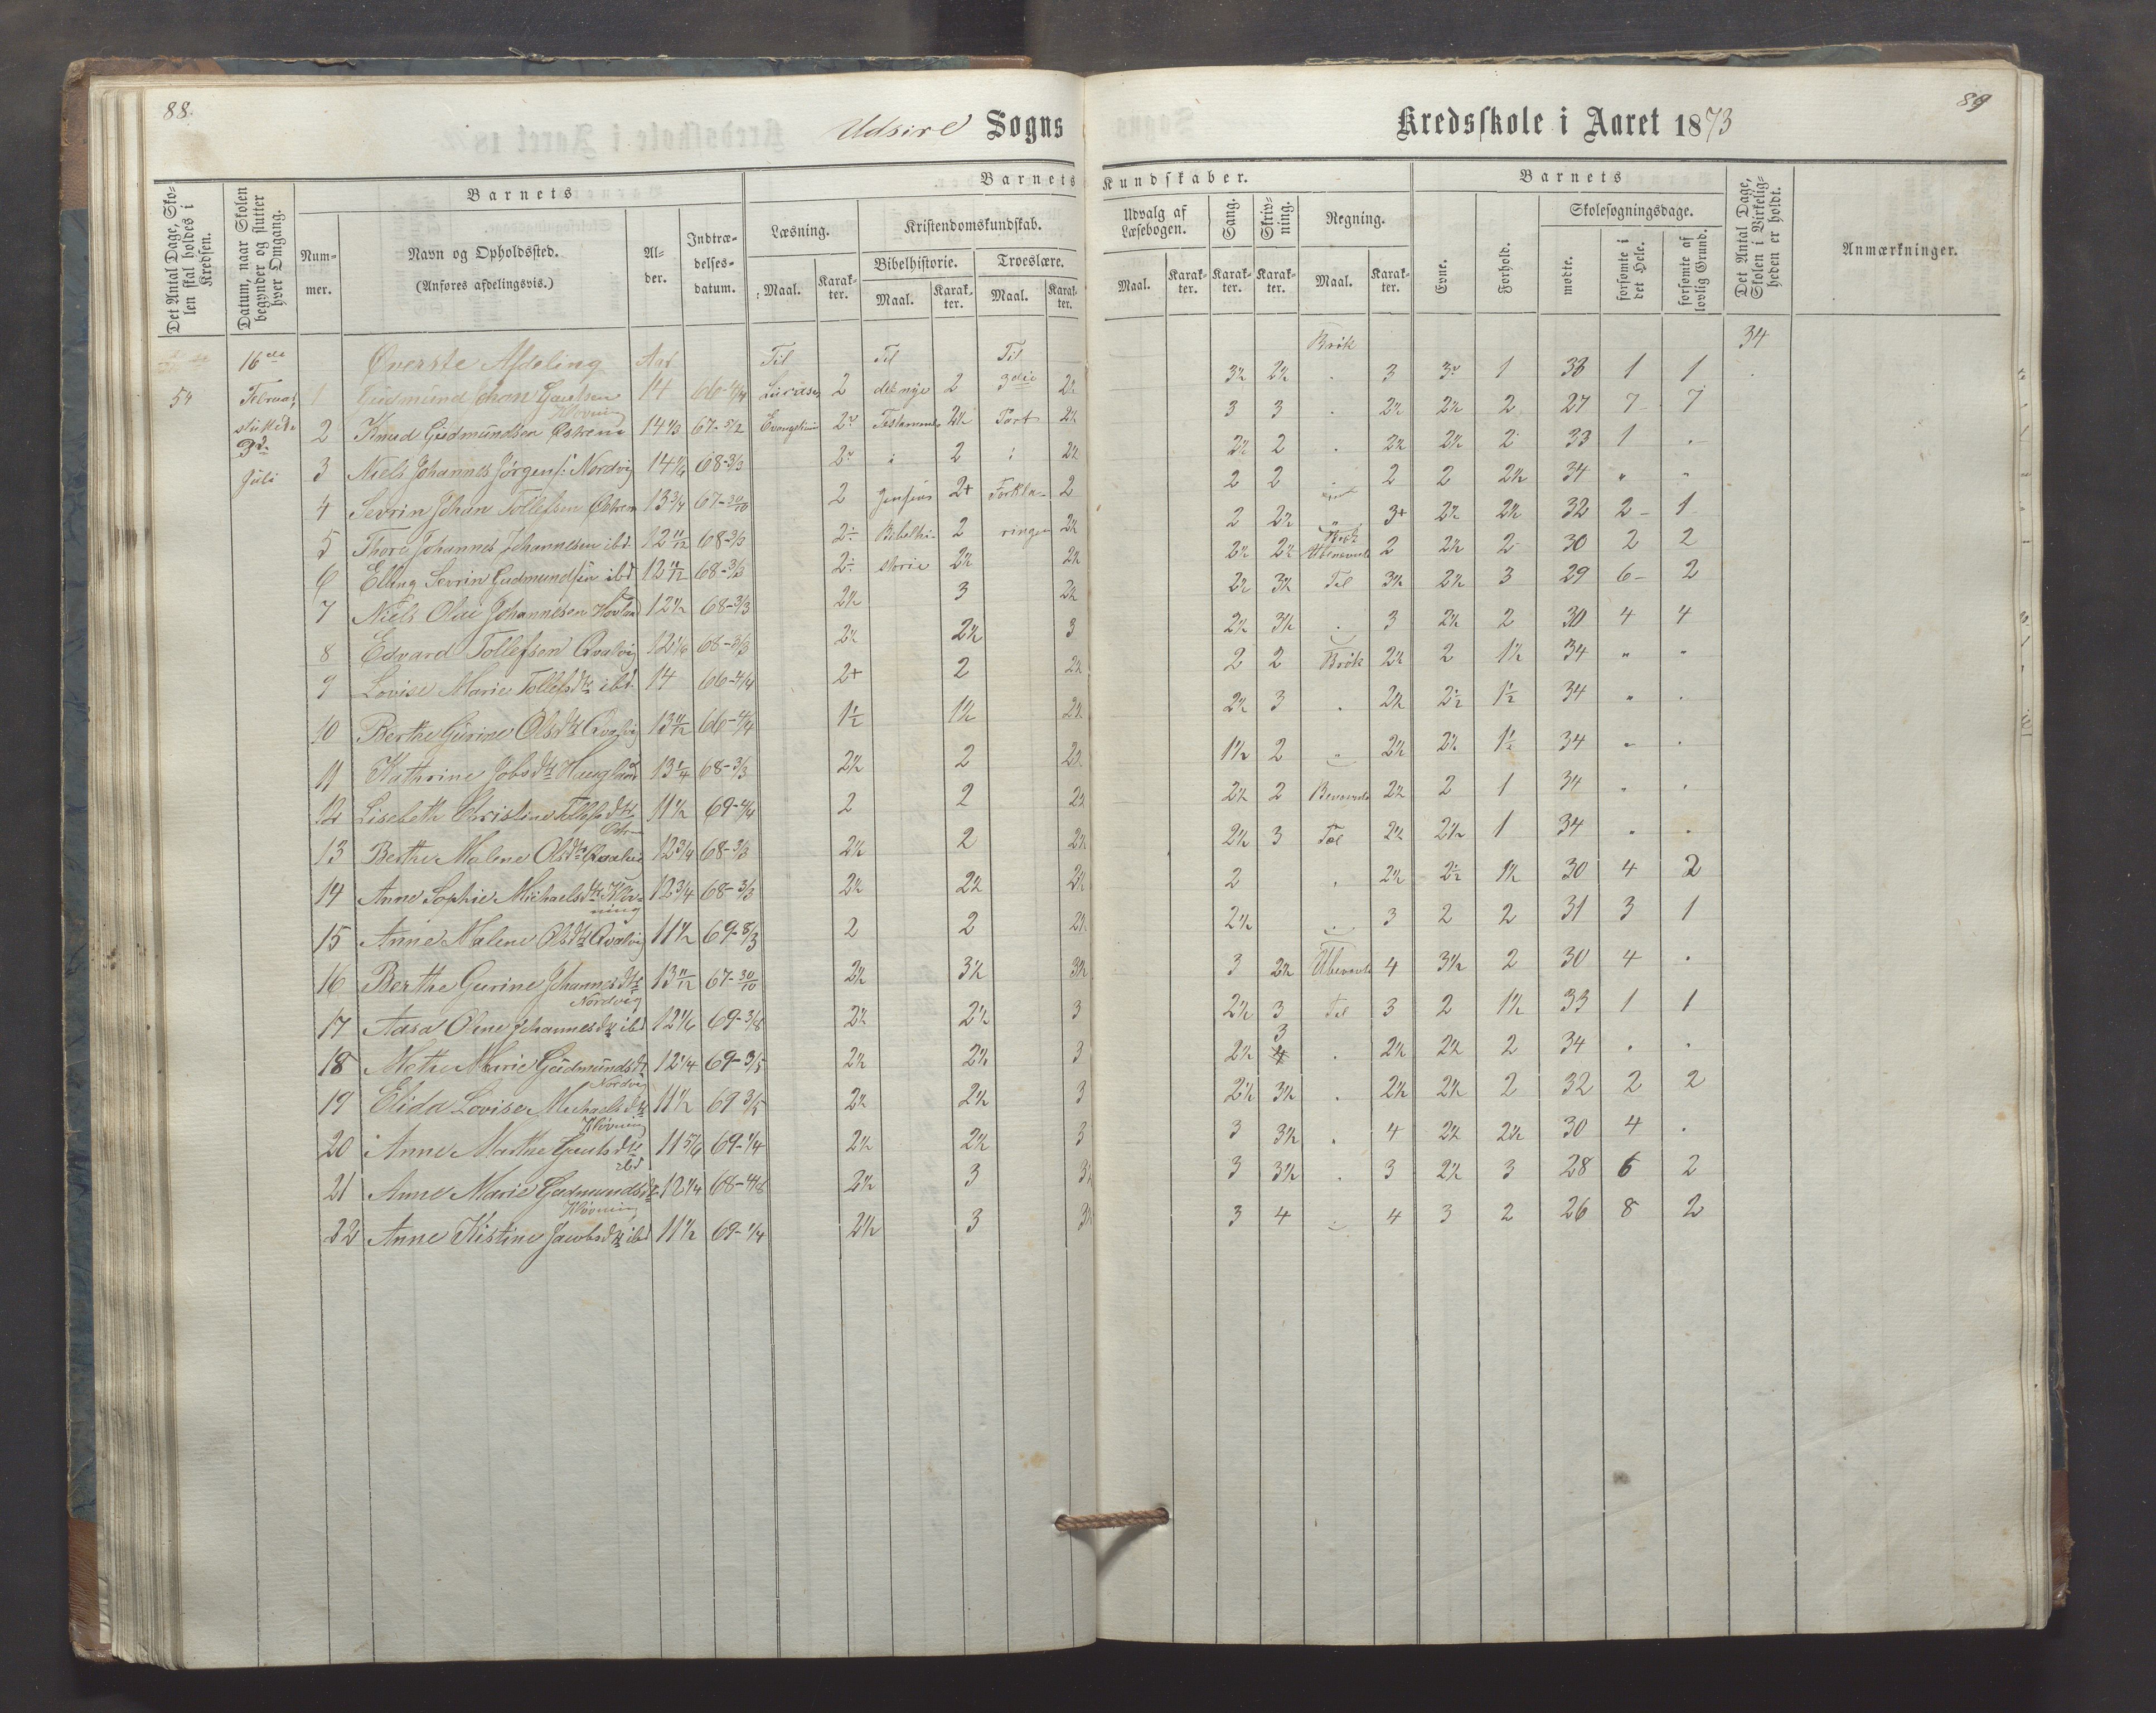 88.
Udsire Sogns
Kredsskole i Aaret 1873
89
Det Antal Dage, Skolen skal holdes i Kredsen.
Datum, naar Skolen begynder og slutter hver Omgang.
Barnets
Nummer.
Navn og Opholdssted.
(Anføres afdelingsvis.)
Alder.
Indtrædelsesdatum.
Barnets Kundskaber.
Læsning.
Maal. Karakter.
Kristendomskundskab.
Bibelhistorie. Troeslære.
Maal. Karakter. Maal. Karakter.
Udvalg af Læsebogen.
Maal. Karakter.
Sang. Karakter.
Skrivning. Karakter.
Regning.
Maal. Karakter.
Barnets
Evne. Forhold.
Skolesøgningsdage.
mødte. forsømte i det Hele. forsømte af lovlig Grund.
Det Antal Dage, Skolen i Virkeligheden er holdt.
Anmærkninger.
16de Øverste Afdeling Aar Til Til Til Brøk 34
54 Februar 1 Gudmund Johan Gautsen Kløvning 14 66-4/4 Lucas 2 det nye 2 3die 2½ 3½ 2½ . 3 3 1 33 1 1
sluttede 2 Knud Gudmundsen Østrem 14 1/3 67-5/2 Evangelium 2 Testamente 2½ Part 2½ 3 3 . 2½ 2½ 2 27 7 7
3d 3 Niels Johannes Jørgens: Nordvig 14 1/6 68-3/3 2 2 2½ 2½ 2 . 2½ 2½ 2 33 1 .
Juli 4 Sevrin Johan Tollefsen Østrem 13 3/4 67-30/10 2 Jensens 2+ Forkla- 2 2 2 2 2 2½ 34 " "
5 Thore Johannes Johannesen ibd 12 11/12 68-3/3 2÷ Bibelhi- 2 ringen 2½ 2 2½ " 3+ 2½ 2½ 32 2 1
6 Elling Sevrin Gudmundsen ibd 12 11/12 68-3/3 2÷ storie 2½ 2½ 2½ 2½ Ubenevnte 2 2½ 2 30 2 2
7 Niels Olai Johannesen Hovland 12½ 68-3/3 2½ 3 2½ 2½ 3½ Tal 3½ 2½ 3 29 6 2
8 Edvard Tollefsen Qvalvig 12 1/6 68-3/3 2½ 2½ 3 2½ 3½ . 3 2½ 2 30 4 4
9 Lovise Marie Tollefsdtr ibd. 14 66-4/4 2+ 2 2½ 2 2 Brøk 2½ 2 1½ 34 " "
10 Berthe Gurine Olsdtr Qvalvig 13 11/12 66-4/4 1½ 1½ 2½ 2½ 3 . 2½ 2½ 1½ 34 " .
11 Kathrine Jobsdtr Haugland 13 1/4 68-3/3 2½ 2 2½ 1½ 2 " 2½ 2½ 1½ 34 " .
12 Lisebeth Christine Tollefsdtr Østrem 11½ 69-1/4 2 2 2½ 2½ 2 Benevnte 2½ 2 1 34 " .
13 Berthe Malene Olsdtr Qvalvig 12 3/4 68-3/3 2½ 2 2½ 2½ 3 Tal 2½ 2½ 1 34 " .
14 Anne Sophie Michaelsdtr Kløvning 12 3/4 68-3/3 2½ 2½ 3½ 2 . 2½ 2½ 1½ 30 4 2
15 Anne Malene Olsdtr Qvalvig 11½ 69-8/3 2 2 2½ 2½ . 3 2 2 31 3 1
16 Berthe Gurine Johannesdtr Nordvig 13 11/12 67-30/10 2½ 3½ 3½ 3 2½ Ubenevnte 4 3½ 2 30 4 .
17 Aasa Oline Johannesdtr ibd 12 1/6 69-3/8 2½ 2½ 3 2½ 3 Tal 3 2 1½ 33 1 1
18 Methe Marie Gudmundsdtr Nordvig 12 1/4 69-3/5 2½ 2½ 3 2½ 3 . 2½ 2½ 2 34 . .
19 Elida Lovise Michaelsdtr Kløvning 11½ 69 3/5 2½ 2½ 3 2½ 3½ . 2½ 2½ 2 32 2 2
20 Anne Marthe Gautsdtr ibd 11 5/6 69-1/4 2½ 2½ 3 3 3½ . 4 2½ 2½ 30 4 .
21 Anne Marie Gudmundsdtr Kløvning 12 1/4 68-4/8 2½ 3 3½ 3 3½ . 3 2½ 3 28 6 2
22 Anne Kistine Jacobsdtr ibd 11½ 69-1/4 2½ 3 3½ 3 4 . 4 3 2 26 8 2